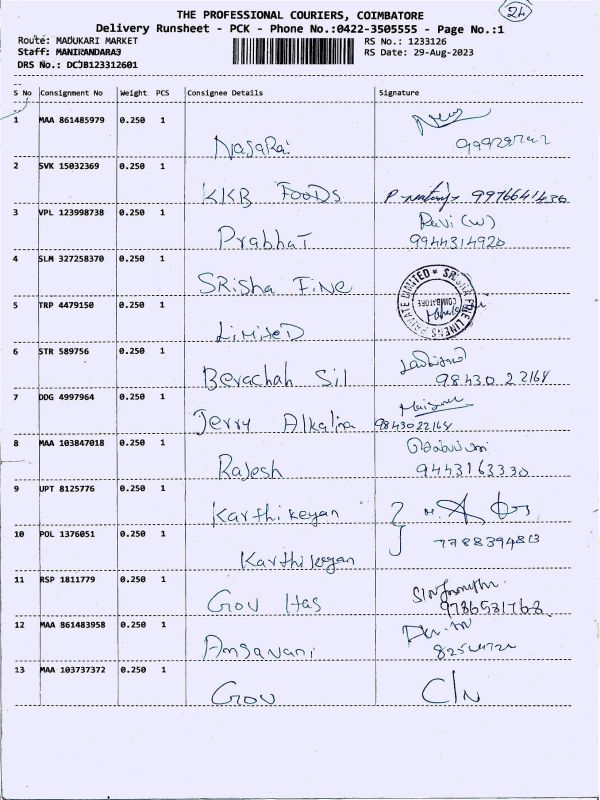 24
THE PROFESSIONAL COURIERS, COIMBATORE
Delivery Runsheet - PCK - Phone No.:0422-3505555 - Page No.:1
Route: MADUKARI MARKET RS No.: 1233126
Staff: MANIRANDARAJ RS Date: 29-Aug-2023
DRS No.: DCJB123312601
S No Consignment No Weight PCS Consignee Details Signature
1 MAA 861485979 0.250 1
NagaRaj
2 SVK 15032369 0.250 1
KKB FOODS 9976641436
3 VPL 123998738 0.250 1 Ravi (W)
Prabhat 9944314920
4 SLM 327258370 0.250 1
SRisha Fine
PRIVATE LIMITED * SRISHA FINE LINENS
COIMBATORE
5 TRP 4479150 0.250 1
LimiteD
6 STR 589756 0.250 1
Berachah Sil 98430 22164
7 DDG 4997964 0.250 1
Jerry Alkalina 9843022164
8 MAA 103847018 0.250 1
Rajesh 9443163330
9 UPT 8125776 0.250 1
Karthikeyan
10 POL 1376051 0.250 1 7788394813
Karthikeyan
11 RSP 1811779 0.250 1
Gou Has 9786531768
12 MAA 861483958 0.250 1
Angavani
13 MAA 103737372 0.250 1
Gou C/N